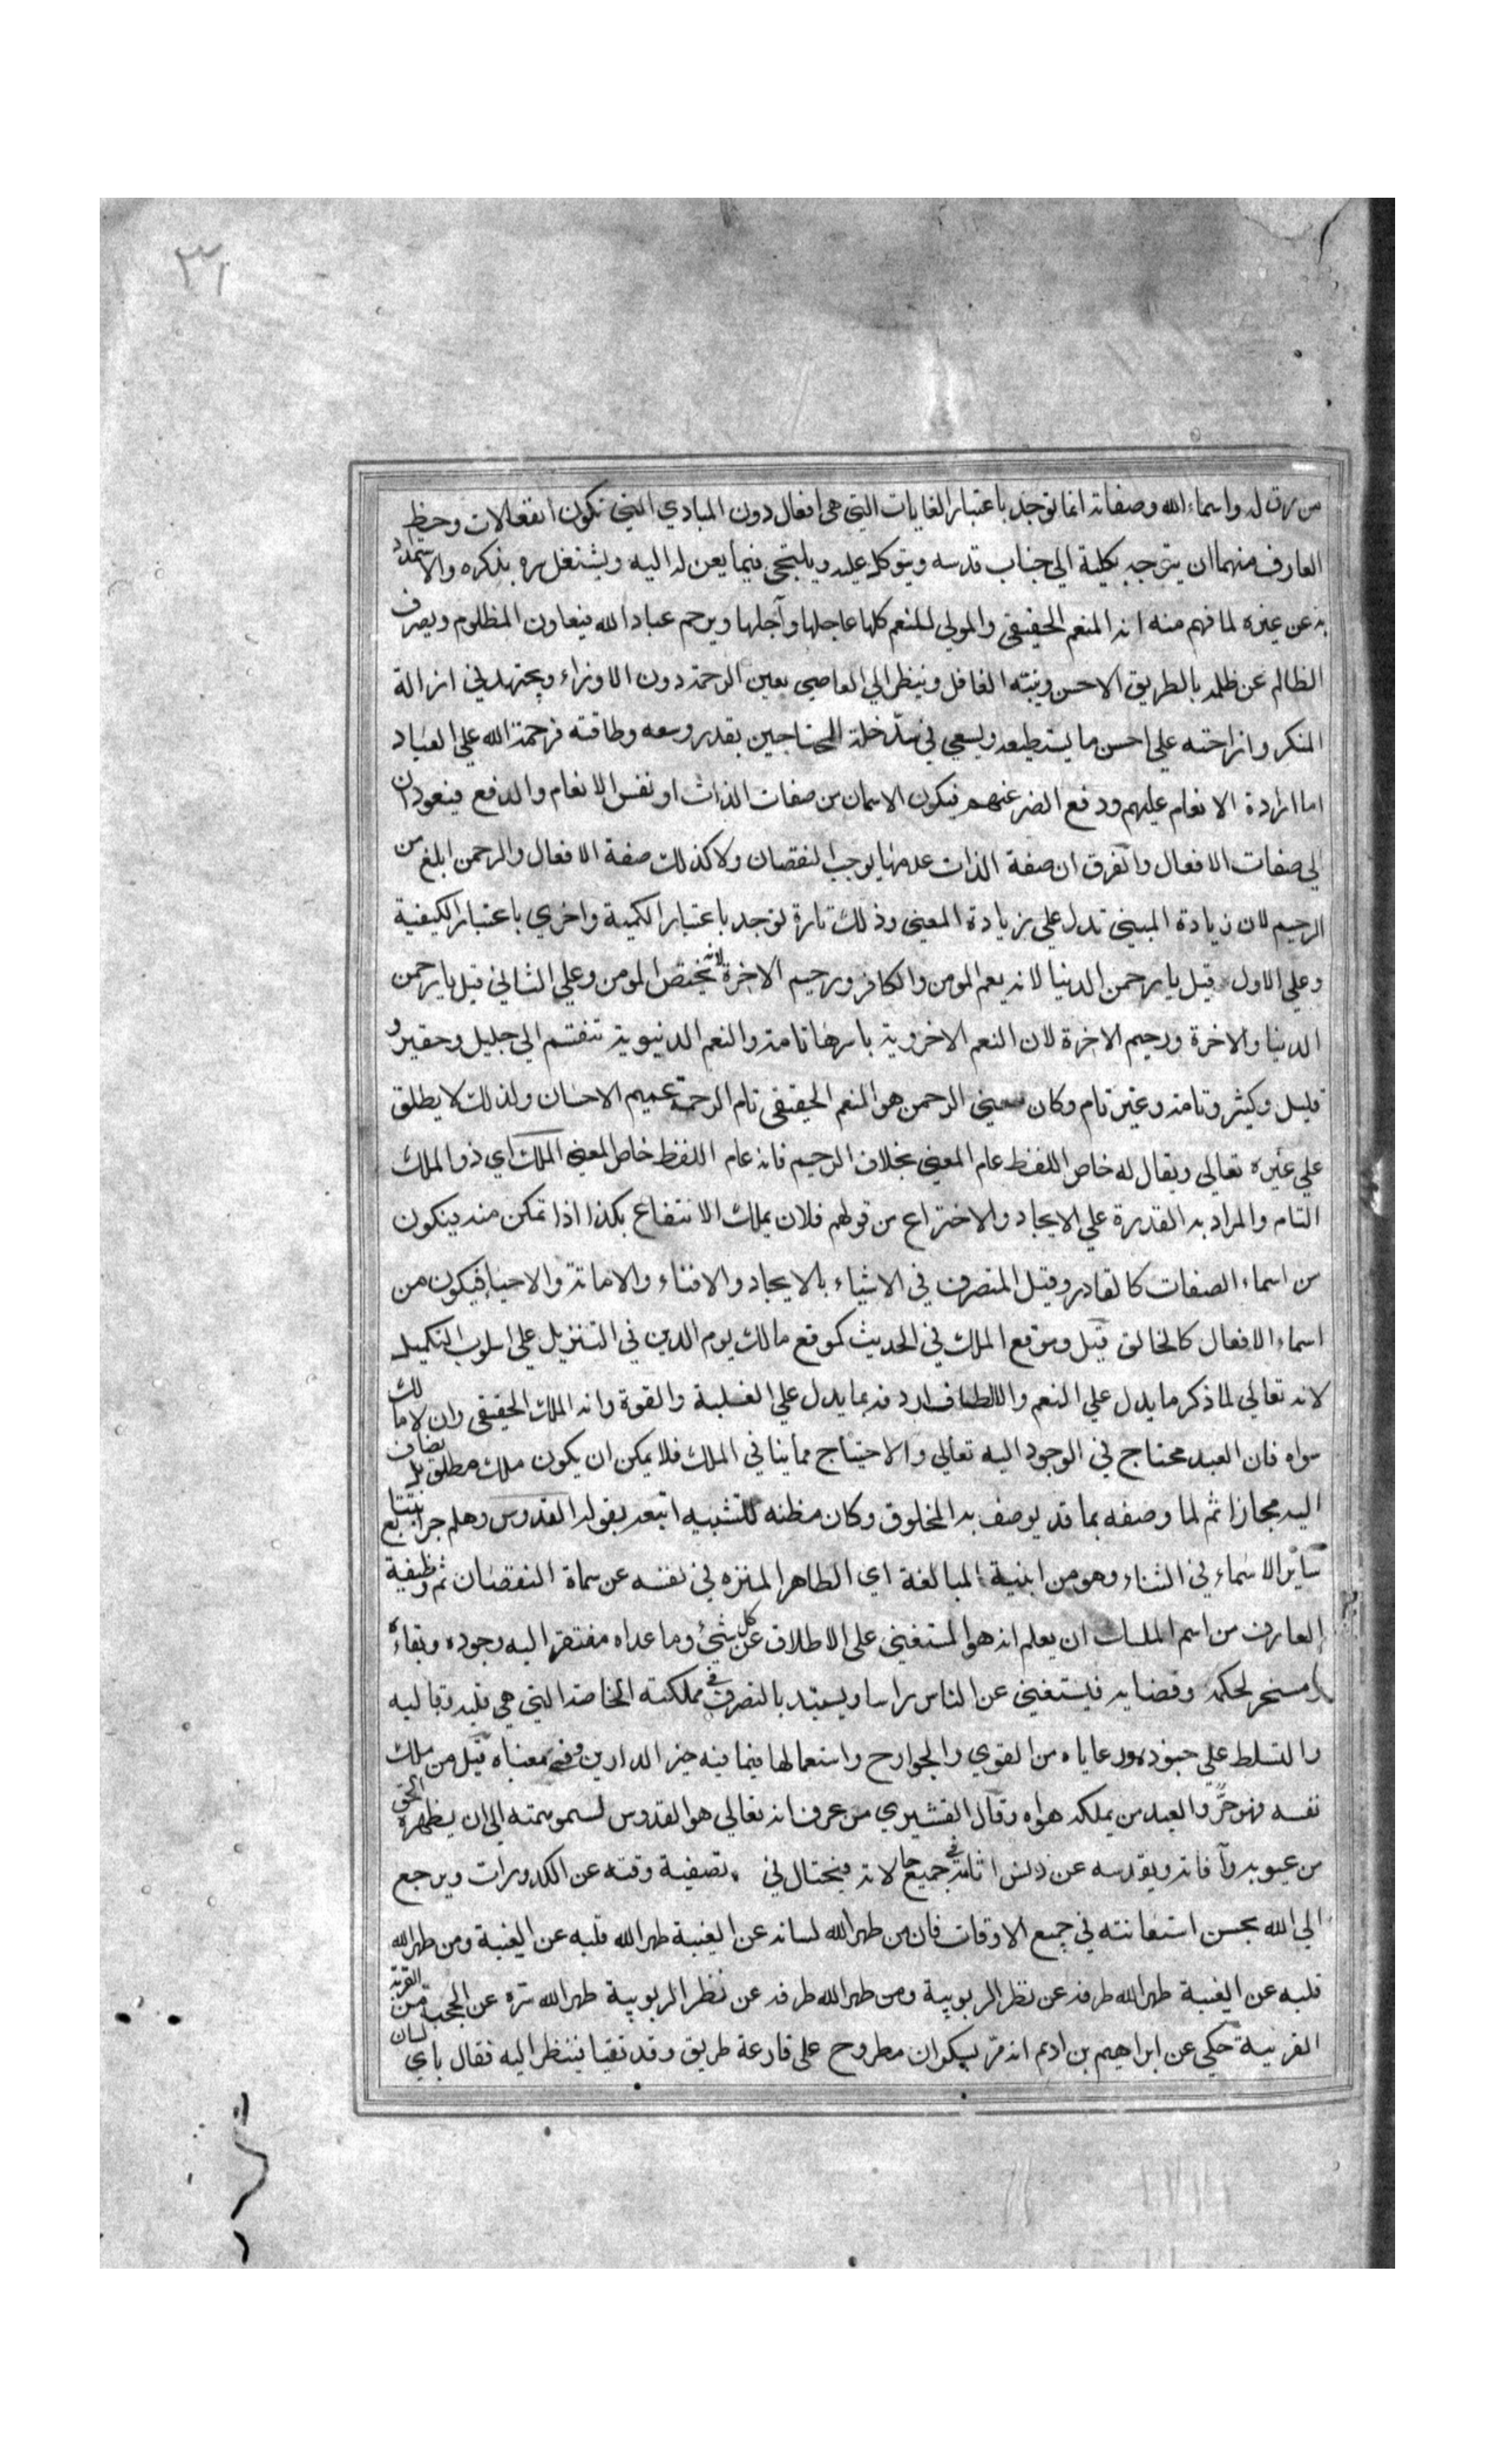 ٣١
من رق له واسماء الله وصفاته انما توجد باعتبار الغايات التي هي افعال دون المبادي التي تكون انفعالات وحظ
العارف منهما ان يتوجه بكلية الي جناب قدسه ويتوكل عليه ويلتجي فيما يعن له اليه ويشتغل سره بذكره والاستمداد
به عن غيره لما فهم منه انه المنعم الحقيقي والمولي للنعم كلها عاجلها وآجلها ويرحم عباد الله فيعاون المظلوم ويصرف
الظالم عن ظلمه بالطريق الاحسن وينبه الغافل وينظر الي العاصي بعين الرحمة دون الاوزراء ويجتهد في ازالة
المنكر وازاحته علي احسن ما يستطيعه ويسعي في سدّ خلة المحتاجين بقدر وسعه وطاقته فرحمة الله علي العباد
اما ارادة الانعام عليهم ودفع الضر عنهم فيكون الاسمان من صفات الذات او نفس الانعام والدفع فيعودان
الي صفات الافعال والفرق ان صفة الذات عدمها يوجب النقصان ولا كذلك صفة الافعال والرحمن ابلغ من
الرحيم لان زيادة المبني تدل علي زيادة المعني وذلك تارة توجد باعتبار الكمية واخري باعتبار الكيفية
وعلي الاول قيل يا رحمن الدنيا لانه يعم المومن والكافر ورحيم الاخرة لانه يختص المومن وعلي الثاني قيل يا رحمن
الدنيا والاخرة ورحيم الاخرة لان النعم الاخروية باسرها تامة والنعم الدنيوية تنقسم الي جليل وحقير و
قليل وكثير وتامة وغير تام وكان معني الرحمن هو المنعم الحقيقي تام الرحمة عميم الاحسان ولذلك لا يطلق
علي غيره تعالي ويقال له خاص اللفظ عام المعني بخلاف الرحيم فانه عام اللفظ خاص المعني الملك اي ذو الملك
التام والمراد به القدرة علي الايجاد والاختراع من قولهم فلان يملك الانتفاع بكذا اذا تمكن منه فيكون
من اسماء الصفات كالقادر وقيل المتصرف في الاشياء بالايجاد والافناء والاماتة والاحياء فيكون من
اسماء الافعال كالخالق قيل وموقع الملك في الحديث كموقع مالك يوم الدين في التنزيل علي اسلوب التكميل
لانه تعالي لما ذكر ما يدل علي النعم والالطاف اردفه بما يدل علي الغلبة والقوة وانه الملك الحقيقي وان لا مالك
سواه فان العبد محتاج في الوجود اليه تعالي والاحتياج مما ينافي الملك فلا يمكن ان يكون ملك مطلق بل يضاف
اليه مجازا ثم لما وصفه بما قد يوصف به المخلوق وكان مظنة للتشبيه اتبعه بقوله القدوس وهلم جرا تتابع
ساير الاسماء في الثناء وهو من ابنية المبالغة اي الطاهر المنزه في نفسه عن سماة النقصان ثم وظيفية
العارف من اسم الملك ان يعلم انه هو المستغني علي الاطلاق عن كل شيء وما عداه مفتقر اليه وجوده وبقاءه
مسخر لحكمه وقضايه فيستغني عن الناس راسا ويستبد بالتصرف في مملكته الخاصة التي هي قلبه وقالبه
والتسلط علي جنوده ورعاياه من القوي والجوارح واستعمالها فيما فيه خير الدارين وفي معناه قيل من ملك
نفسه فهو حرّ والعبد من يملكه هواه وقال القشيري من عرف انه تعالي هو القدوس لسمو همته الي ان يطهره الحق
من عيوبه وآفاته ويقدسه عن دنس اثامه في جميع حالاته فيحتال في تصفية وقته عن الكدورات ويرجع
الي الله بحسن استعانته في جميع الاوقات فان من طهر الله لسانه عن الغيبة طهر الله قلبه عن الغيبة ومن طهر الله
قلبه عن الغيبة طهر الله طرفه عن نظر الريوبية ومن طهر الله طرفه عن نظر الريوبية طهر الله سره عن الحجب من القربة
القربية حكي عن ابراهيم بن ادهم انه مرّ بسكران مطروح علي قارعة طريق وقد تقيا فنظر اليه فقال باي لسان